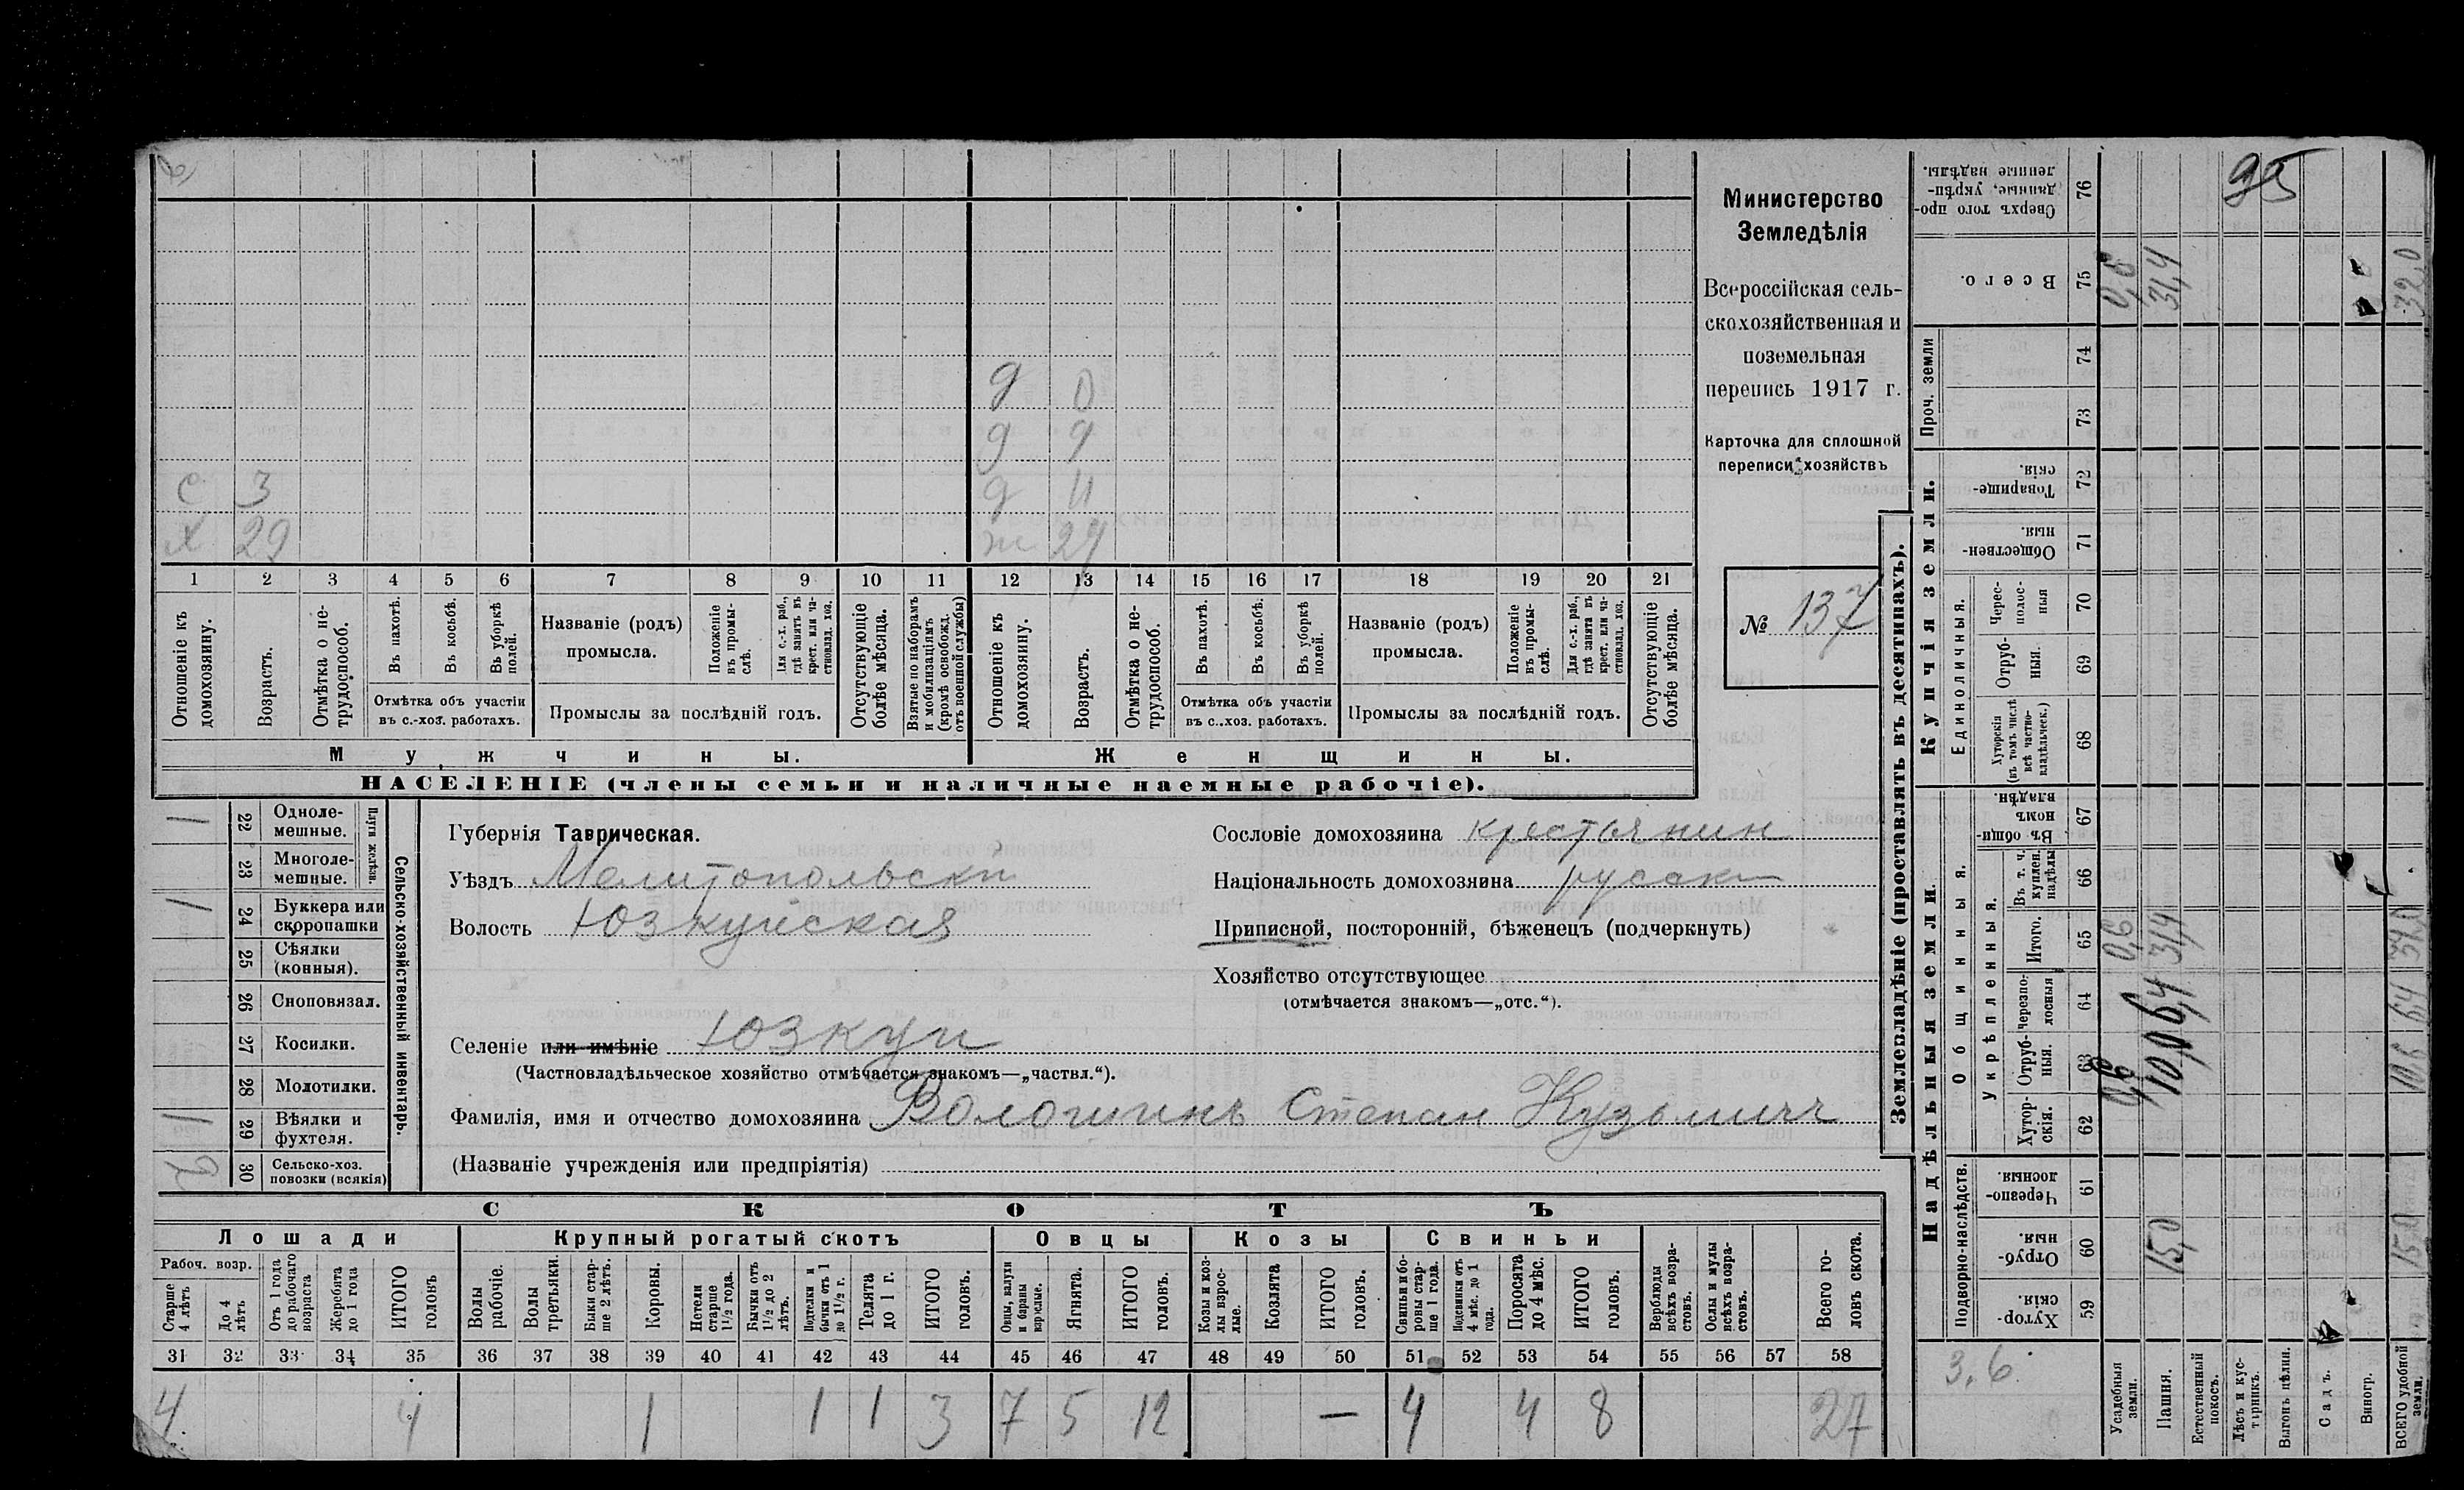 95
Министерство
Земледѣлія
Всероссійская сель-
скохозяйственная и
поземельная
перепись 1917 г.
Карточка для сплошной
переписи хозяйствъ
№ 137
д 0
д 9
с 3 д 11
х 29 ж 29
1 2 3 4 5 6 7 8 9 10 11 12 13 14 15 16 17 18 19 20 21
Отношеніе къ домохозяину.
Возрастъ.
Отмѣтка о не-трудоспособ.
Въ пахотѣ.
Въ косьбѣ.
Въ уборкѣ полей.
Отмѣтка объ участіи
въ с.-хоз. работахъ.
Названіе (родъ)
промысла.
Положеніе въ промы-слѣ.
Для с.-х. раб., гдѣ занятъ въ крест. или ча-стновлад. хоз.
Промыслы за послѣдній годъ.
Отсутствующіе болѣе мѣсяца.
Взятые по наборамъ и мобилизаціямъ (кромѣ освобожд. отъ военной службы)
Отношеніе къ домохозяину.
Возрастъ.
Отмѣтка о не-трудоспособ.
Въ пахотѣ.
Въ косьбѣ.
Въ уборкѣ полей.
Отмѣтка объ участіи
въ с.-хоз. работахъ.
Названіе (родъ)
промысла.
Положеніе въ промы-слѣ.
Для с.-х. раб., гдѣ занята въ крест. или ча-стновлад. хоз.
Промыслы за послѣдній годъ.
Отсутствующіе болѣе мѣсяца.
Мужчины. Женщины.
НАСЕЛЕНІЕ (члены семьи и наличные наемные рабочіе).
Сельско-хозяйственный инвентарь.
Плуги желѣзн.
1 22 Одноле-мешные.
23 Многоле-мешные.
1 24 Буккера или скоропашки
25 Сѣялки (конныя).
26 Сноповязал.
27 Косилки.
28 Молотилки.
1 29 Вѣялки и фухтеля.
2 30 Сельско-хоз. повозки (всякія)
Губернія Таврическая.
Уѣздъ Мелитопольскій
Волость Юзкуйская
Селеніе или имѣніе Юзкуи
(Частновладѣльческое хозяйство отмѣчается знакомъ—„частвл.“).
Фамилія, имя и отчество домохозяина Волошинъ Степан Кузьмичъ
(Названіе учрежденія или предпріятія)
Сословіе домохозяина крестьянин
Національность домохозяина русак
Приписной, посторонній, бѣженецъ (подчеркнуть)
Хозяйство отсутствующее
(отмѣчается знакомъ—„отс.“).
СКОТЪ
Лошади Крупный рогатый скотъ Овцы Козы Свиньи
Рабоч. возр.
Старше 4 лѣтъ
До 4 лѣтъ
Отъ 1 года до рабочаго возраста
Жеребята до 1 года
ИТОГО головъ
Волы рабочіе.
Волы третьяки.
Быки стар-ше 2 лѣтъ.
Коровы.
Нетели старше 1½ года.
Бычки отъ 1½ до 2 лѣтъ.
Подтелки и бычки отъ 1 до 1½ г.
Телята до 1 г.
ИТОГО головъ.
Овцы, валухи и бараны взрослые.
Ягнята.
ИТОГО головъ.
Козы и коз-лы взрос-лые.
Козлята
ИТОГО головъ.
Свиньи и бо-ровы стар-ше 1 года.
Подсвинки отъ 4 мѣс. до 1 года.
Поросята до 4 мѣс.
ИТОГО головъ.
Верблюды всѣхъ возра-стовъ.
Ослы и мулы всѣхъ возра-стовъ.
Всего го-ловъ скота.
31 32 33 34 35 36 37 38 39 40 41 42 43 44 45 46 47 48 49 50 51 52 53 54 55 56 57 58
4 4 1 1 1 3 7 5 12 — 4 4 8 27
Землевладѣніе (проставлять въ десятинахъ).
Надѣльныя земли. Купчія земли. Проч. земли
Подворно-наслѣдств.
Общинныя.
Укрѣпленныя.
Единоличныя.
Хутор-скія. 59
Отруб-ныя. 60 15,0 15,0
Черезпо-лосныя 61
Хутор-скія. 62
Отруб-ныя. 63 0,6 10,0 10,6
Черезпо-лосныя 64 6,4 6,4
Итого. 65 0,6 31,4
Въ т. ч. куплен. надѣлы 66
Въ общи-номъ владѣн. 67
Хуторскія (въ томъ числѣ всѣ частно-владѣльческ.) 68
Отруб-ныя. 69
Черес-полос-ныя 70
Обществен-ныя. 71
Товарище-скія. 72
73
74
Всего. 75 0,6 31,4 32,0
Сверхъ того про-данные, укрѣп-ленные надѣлы. 76
3,6
Усадебныя земли.
Пашня.
Естественный покосъ.
Лѣсъ и кус-тарникъ.
Выгонъ цѣлин.
Садъ.
Виногр.
ВСЕГО удобной земли.